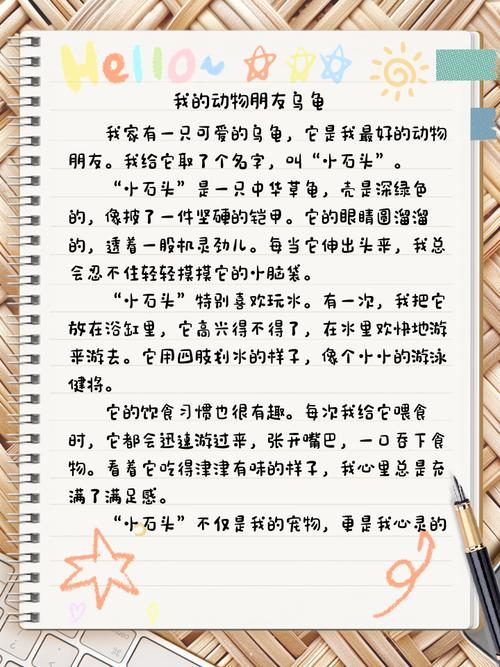 Hello~
我的动物朋友乌龟
我家有一只可爱的乌龟，它是我最好的动物
朋友。我给它取了个名字，叫“小石头”。
“小石头”是一只中华草龟，壳是深绿色
的，像披了一件坚硬的铠甲。它的眼睛圆溜溜
的，透着一股机灵劲儿。每当它伸出头来，我总
会忍不住轻轻摸摸它的小脑袋。
“小石头”特别喜欢玩水。有一次，我把它
放在浴缸里，它高兴得不得了，在水里欢快地游
来游去。它用四肢划水的样子，像个小小的游泳
健将。
它的饮食习惯也很有趣。每次我给它喂食
时，它都会迅速游过来，张开嘴巴，一口吞下食
物。看着它吃得津津有味的样子，我心里总是充
满了满足感。
“小石头”不仅是我的宠物，更是我心灵的